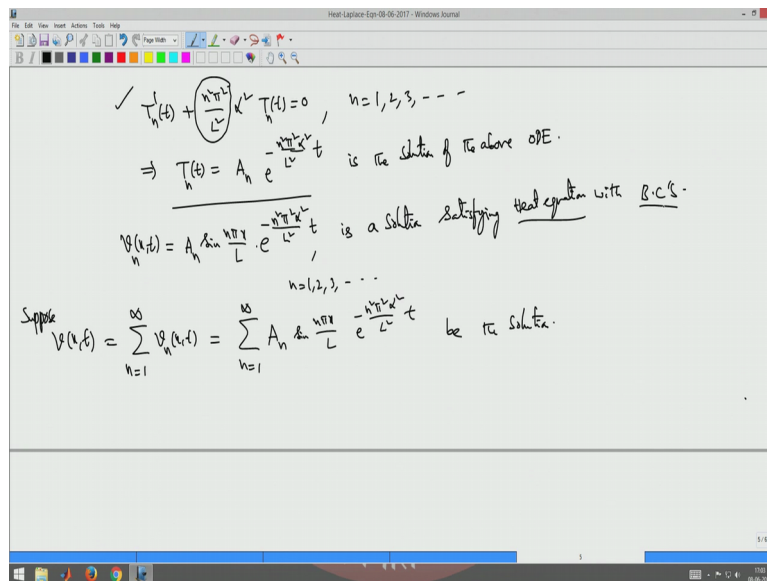 Heat-Laplace-Eqn-08-06-2017 - Windows Journal
File Edit View Insert Actions Tools Help
Page Width
B I
✓ T_n'(t) + (n²π²/L²) α² T_n(t) = 0, n = 1, 2, 3, ---
⇒ T_n(t) = A_n e^{-(n²π²α²/L²) t} is the solution of the above ODE.
v_n(x,t) = A_n sin nπx/L · e^{-(n²π²α²/L²) t}, is a solution satisfying Heat equation with B.C's.
n = 1, 2, 3, - - -
Suppose
v(x,t) = ∑_{n=1}^{∞} v_n(x,t) = ∑_{n=1}^{∞} A_n sin nπx/L e^{-(n²π²α²/L²) t} be the solution.
5/6
5
17:03